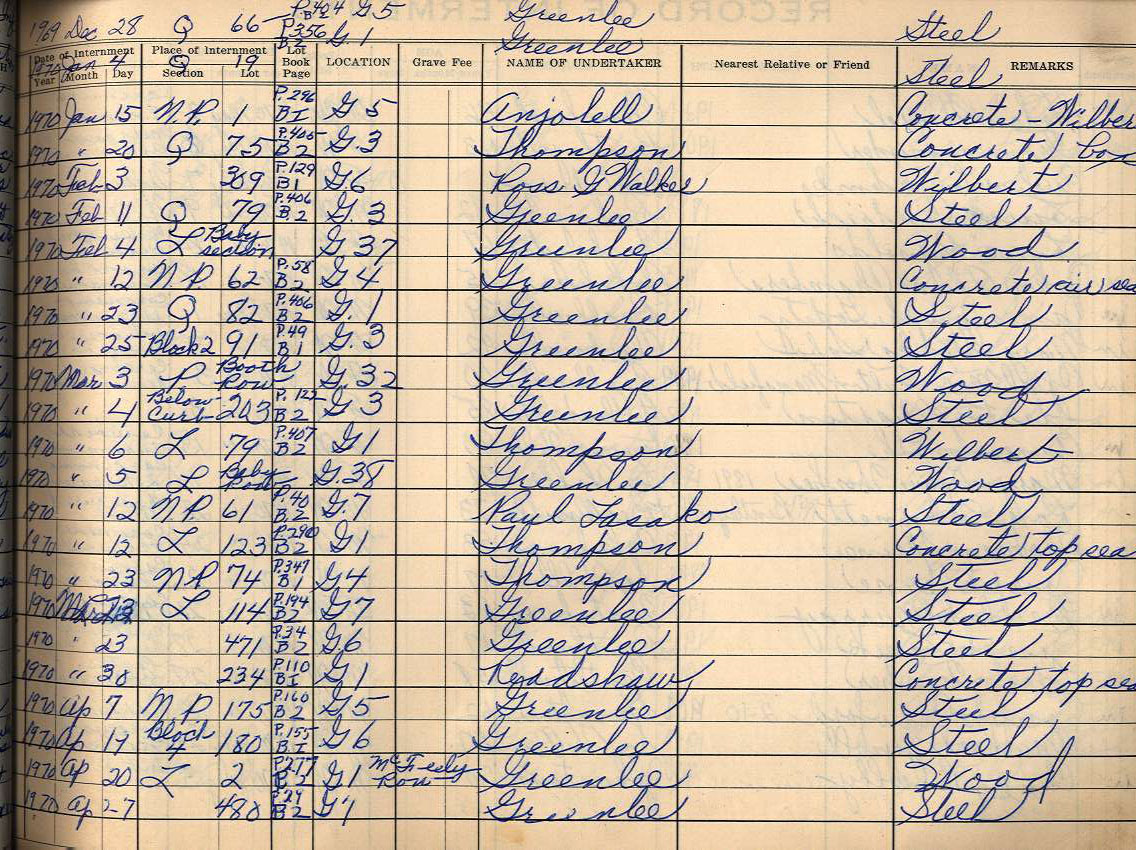 P.404 G.5 Greenlee
1969 Dec 28 Q 66 B2 Steel
P.356 B2 G.1 Greenlee
Date of Internment Place of Internment Lot Book Page LOCATION Grave Fee NAME OF UNDERTAKER Nearest Relative or Friend REMARKS
1970 Jan 4 Q 19 Steel
Year Month Day Section Lot
1970 Jan 15 N.P. 1 P.296 B1 G.5 Anjolell Concrete - Wilber
1970 " 20 Q 75 P.405 B2 G.3 Thompson Concrete box
1970 Feb 3 309 P.129 B1 G.6 Ross G Walker Wilbert
1970 Feb 11 Q 79 P.406 B2 G.3 Greenlee Steel
1970 Feb 4 L Baby section G.37 Greenlee Wood
1970 " 12 N.P. 62 P.58 B.2 G4 Greenlee Concrete air sea
1970 " 23 Q 82 P.406 B2 G.1 Greenlee Steel
1970 " 25 Block 2 91 P.49 B1 G.3 Greenlee Steel
1970 Mar 3 L Booth Row G.32 Greenlee Wood
1970 " 4 Below Curb - 203 P.122 B2 G.3 Greenlee Steel
1970 " 6 L 79 P.407 B2 G1 Thompson Wilbert
1970 " 5 L Baby Row G.38 Greenlee Wood
1970 " 12 N.P. 61 P.40 B2 G.7 Paul Lasako Steel
1970 " 12 L 123 P.290 B2 G1 Thompson Concrete top sea
1970 " 23 N.P. 74 P.347 B1 G4 Thompson Steel
1970 Mar 23 L 114 P.194 B2 G7 Greenlee Steel
1970 " 23 471 P.34 B2 G.6 Greenlee Steel
1970 " 30 234 P.110 B1 G1 Readshaw Concrete top sea
1970 Ap 7 N.P. 175 P.160 B2 G5 Greenlee Steel
1970 Ap 17 Block 4 180 P.155 B1 G6 Greenlee Steel
1970 Ap 20 L 2 P.277 B2 G1 McFeely Row Greenlee Wood
1970 Ap 27 480 B2 G7 Greenlee Steel